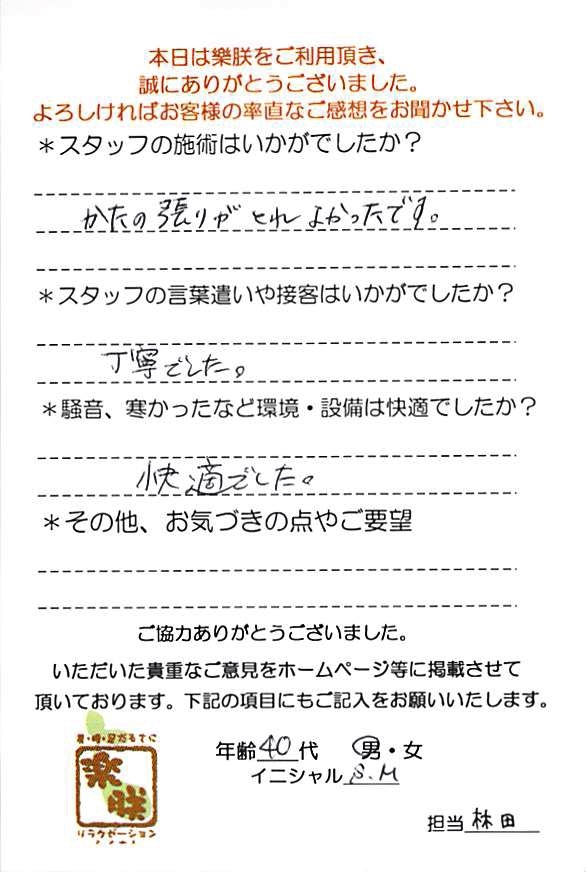 本日は樂朕をご利用頂き、
誠にありがとうございました。
よろしければお客様の率直なご感想をお聞かせ下さい。
＊スタッフの施術はいかがでしたか？
かたの張りがとれ よかったです。
＊スタッフの言葉遣いや接客はいかがでしたか？
丁寧でした。
＊騒音、寒かったなど環境・設備は快適でしたか？
快適でした。
＊その他、お気づきの点やご要望
ご協力ありがとうございました。
いただいた貴重なご意見をホームページ等に掲載させて
頂いております。下記の項目にもご記入をお願いいたします。
年齢40代 男・女
イニシャル S.M
樂朕
リラクゼーション
担当 林田